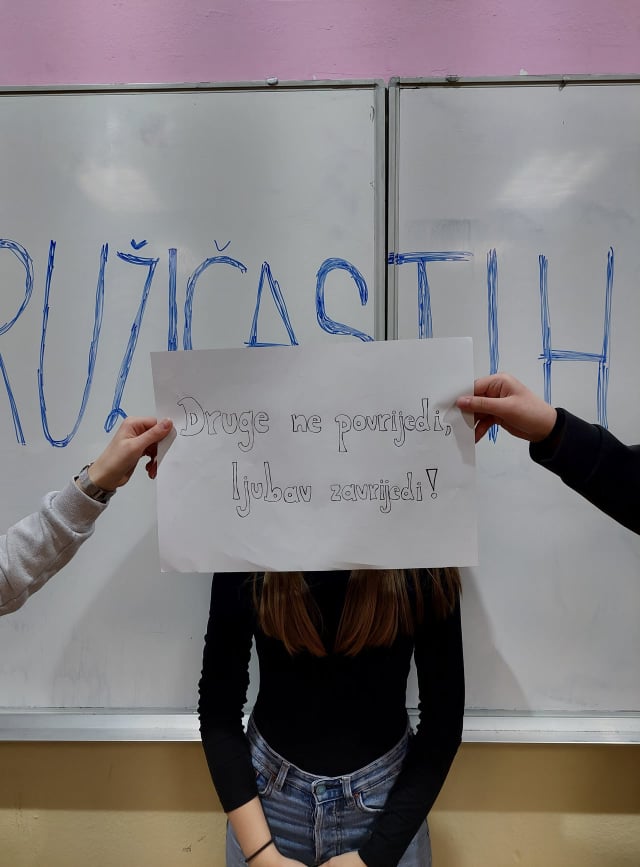 RUŽIČASTIH
Druge ne povrijedi,
ljubav zavrijedi!